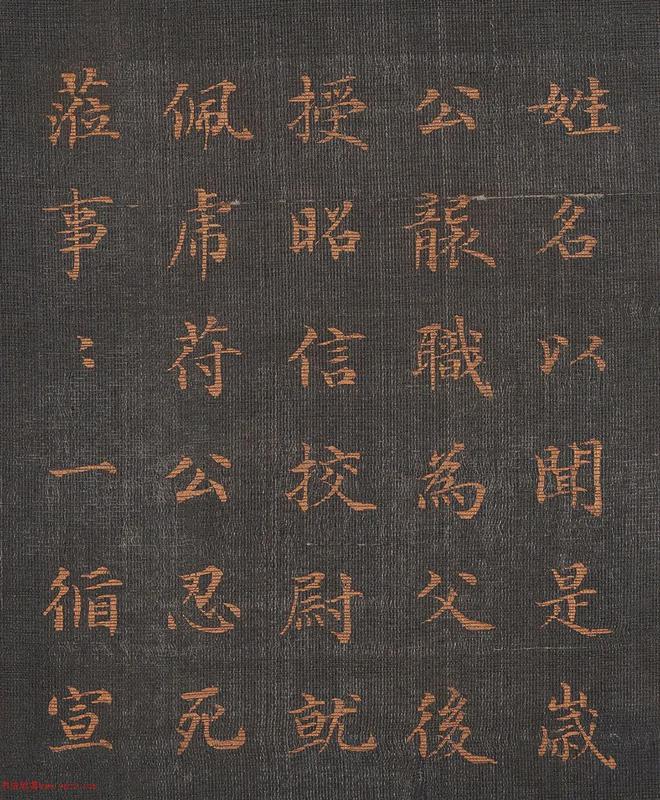 姓名以聞是歲
公服職為父後
授昭信校尉就
佩虎符公忍死
蒞事〻一循宣